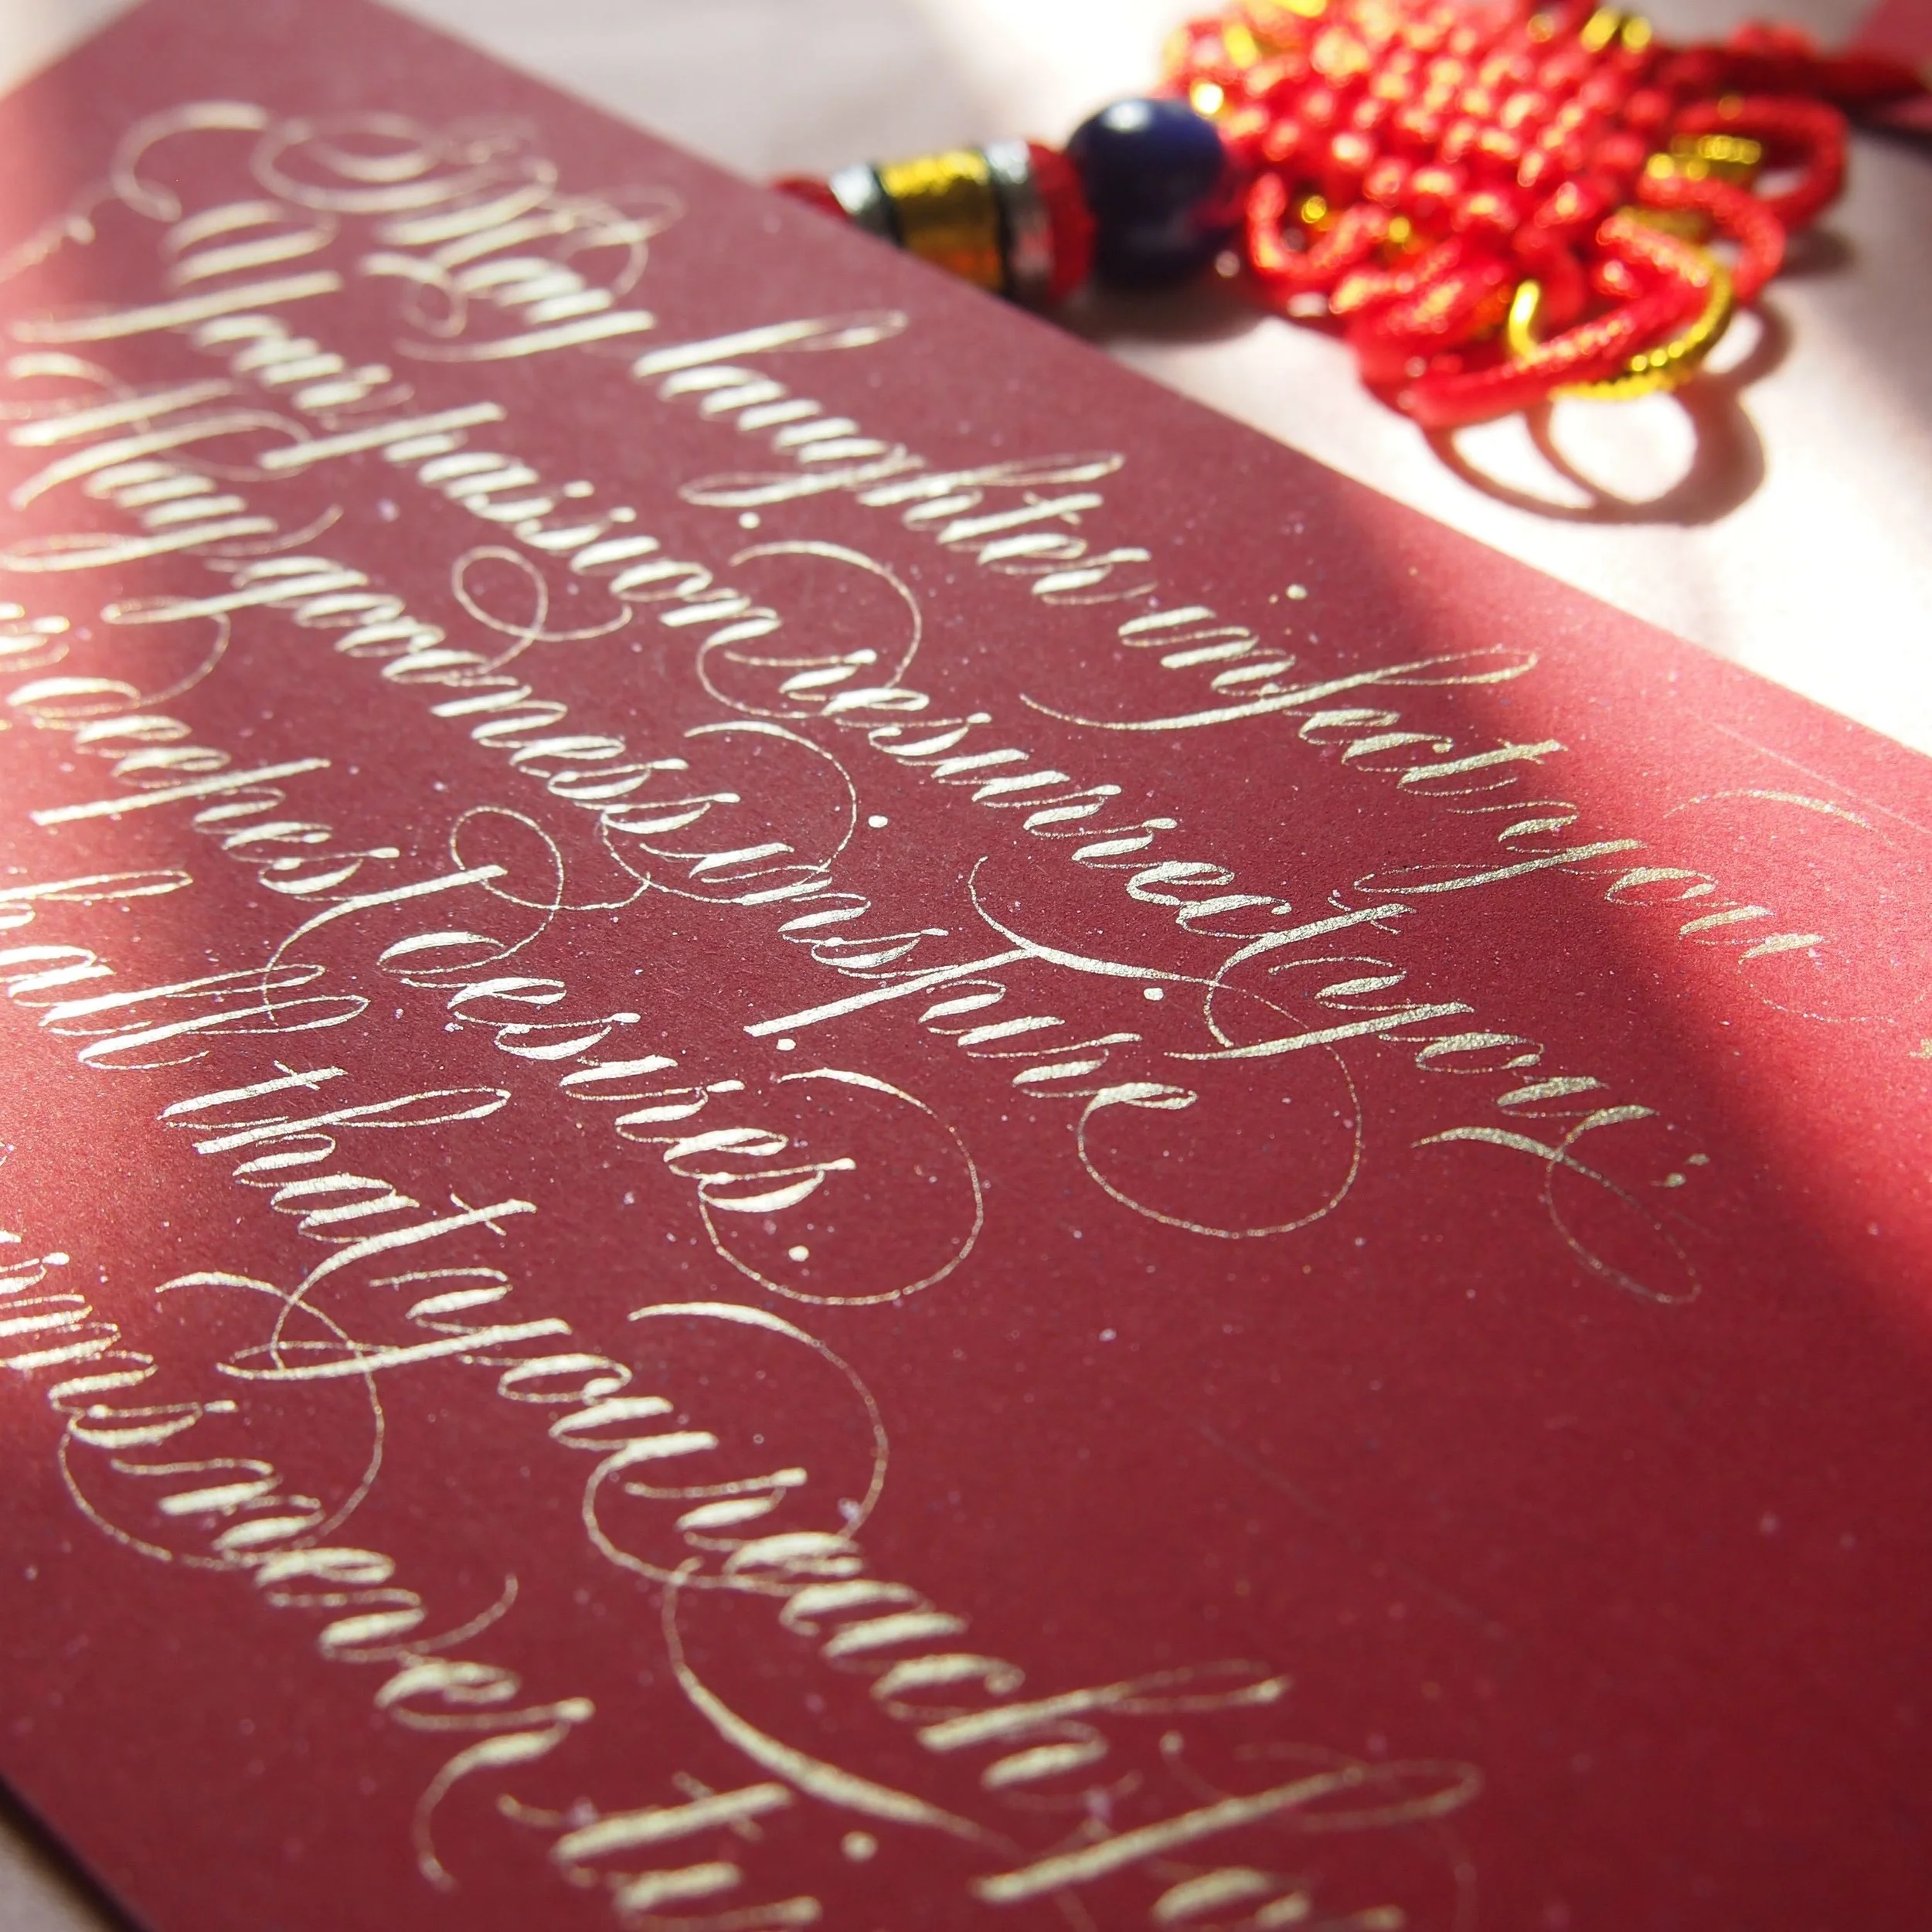 May laughter infect your
Your passion resurrect you,
May goodness inspire
deepest desires.
all that you reach fo
rms never ti